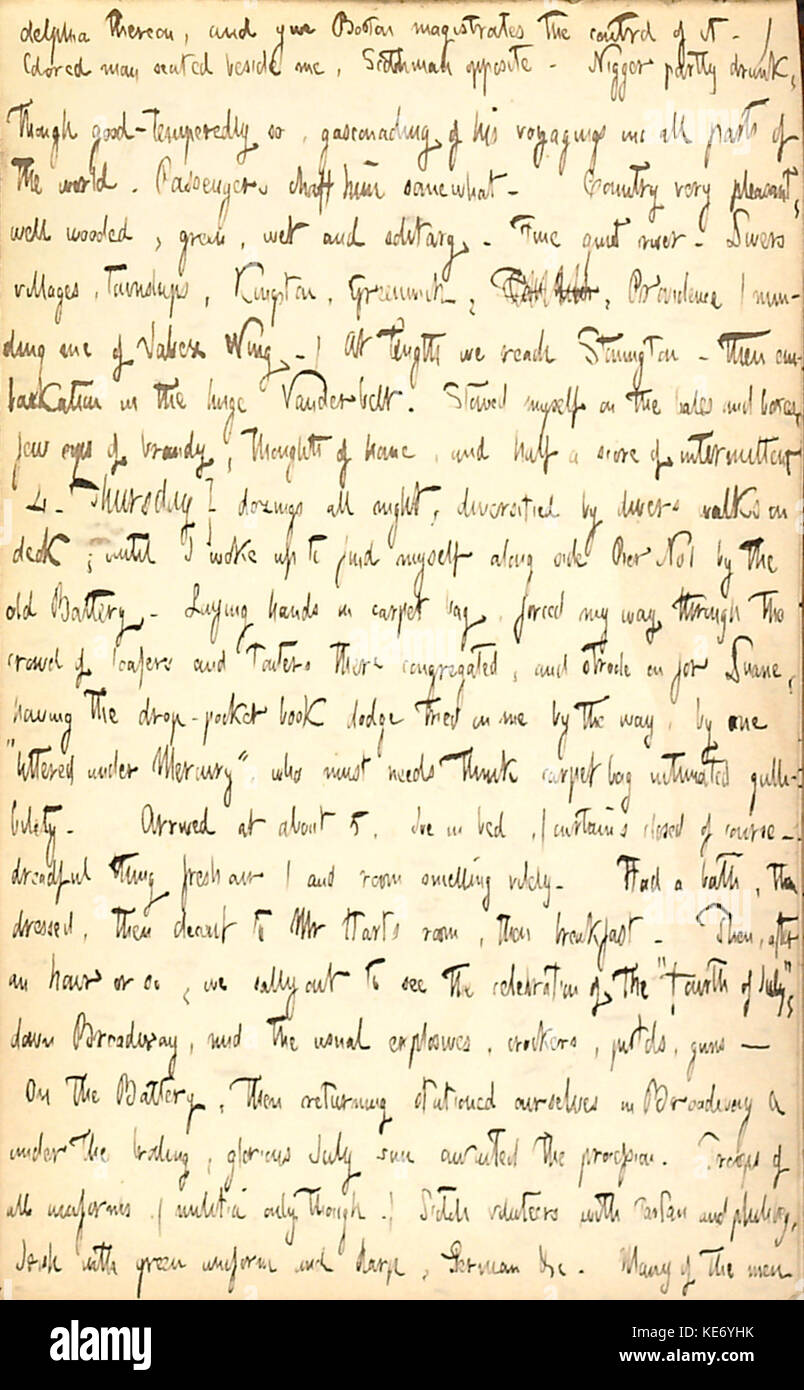 delphia thereon, and give Boston magistrates the control of it - /
Colored man seated beside me, Scotchman opposite - Nigger partly drunk,
though good-temperedly so, gasconading of his voyagings in all parts of
the world. Passengers chaff him somewhat - Country very pleasant,
well wooded, green, wet and solitary. - Fine quiet river - Divers
villages, townships, Kingston, Greenwich, Providence / min-
ding me of Wing. - / At length we reach Stonington - then em-
barkation in the huge Vanderbelt. Stowed myself on the bales and boxes,
few of brandy, thoughts of home, and half a score of intermittent
4. Thursday } dozings all night, diversified by divers walks on
deck; until I woke up to find myself along side Pier No 1 by the
old Battery. - Laying hands on carpet bag, forced my way through the
crowd of loafers and touters there congregated, and strode on for Duane,
having the drop-pocket book dodge tried on me by the way, by one
"littered under Mercury", who must needs think carpet bag intimated gulli-
bility - Arrived at about 5. Joe in bed, / curtains closed of course -
dreadful thing fresh air / and room smelling vilely - Had a bath, then
dressed, then descent to Mr Harts room, then breakfast - Then, after
an hour or so, we sally out to see the celebration of the "Fourth of July",
down Broadway, mid the usual explosives, crackers, pistols, guns —
On the Battery, then returning stationed ourselves in Broadway &
under the broiling, glorious July sun awaited the procession. Troops of
all uniforms / militia only though. / Scotch volunteers with tartan and philibeg,
Irish with green uniform and harp, German &c - Many of the men
alamy
Image ID: KE6YHK
www.alamy.com